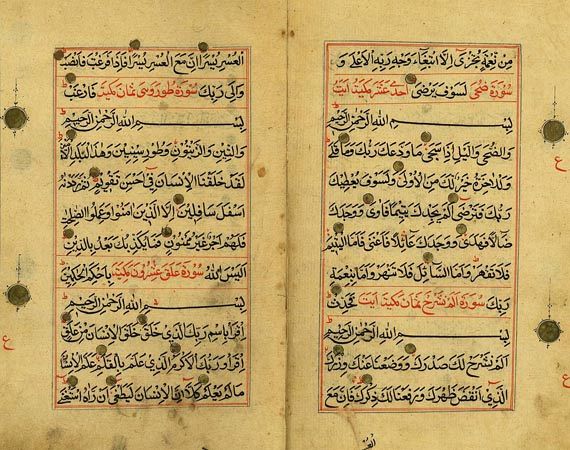 مِنْ نِعْمَةٍ تُجْزَىٰ اِلَّا ابْتِغَاءَ وَجْهِ رَبِّهِ الْاَعْلٰى وَ
لَسَوْفَ يَرْضٰى سورة ضحى احد عشر مكية ايت
بِسْمِ اللهِ الرَّحْمٰنِ الرَّحِيْمِ
وَالضُّحٰى وَالَّيْلِ اِذَا سَجٰى مَا وَدَّعَكَ رَبُّكَ وَمَا قَلٰى
وَلَلْاٰخِرَةُ خَيْرٌ لَكَ مِنَ الْاُوْلٰى وَلَسَوْفَ يُعْطِيْكَ
رَبُّكَ فَتَرْضٰى اَلَمْ يَجِدْكَ يَتِيْمًا فَاٰوٰى وَوَجَدَكَ
ضَالًّا فَهَدٰى وَوَجَدَكَ عَائِلًا فَاَغْنٰى فَاَمَّا الْيَتِيْمَ
فَلَا تَقْهَرْ وَاَمَّا السَّائِلَ فَلَا تَنْهَرْ وَاَمَّا بِنِعْمَةِ
رَبِّكَ سورة الم نشرح ثمان مكية ايت فَحَدِّثْ
بِسْمِ اللهِ الرَّحْمٰنِ الرَّحِيْمِ
اَلَمْ نَشْرَحْ لَكَ صَدْرَكَ وَوَضَعْنَا عَنْكَ وِزْرَكَ
الَّذِيْ اَنْقَضَ ظَهْرَكَ وَرَفَعْنَا لَكَ ذِكْرَكَ فَاِنَّ مَعَ
الْعُسْرِ يُسْرًا اِنَّ مَعَ الْعُسْرِ يُسْرًا فَاِذَا فَرَغْتَ فَانْصَبْ
وَاِلٰى رَبِّكَ سورة ثمان مكية فَارْغَبْ
بِسْمِ اللهِ الرَّحْمٰنِ الرَّحِيْمِ
وَالتِّيْنِ وَالزَّيْتُوْنِ وَطُوْرِ سِيْنِيْنَ وَهٰذَا الْبَلَدِ الْاَ
لَقَدْ خَلَقْنَا الْاِنْسَانَ فِيْ اَحْسَنِ تَقْوِيْمٍ ثُمَّ رَدَدْنٰهُ
اَسْفَلَ سَافِلِيْنَ اِلَّا الَّذِيْنَ اٰمَنُوْا وَعَمِلُوا الصّٰلِحٰتِ
فَلَهُمْ اَجْرٌ غَيْرُ مَمْنُوْنٍ فَمَا يُكَذِّبُكَ بَعْدُ بِالدِّيْنِ
اَلَيْسَ اللهُ سورة علق عشرون مكية بِاَحْكَمِ الْحٰكِمِيْنَ
بِسْمِ اللهِ الرَّحْمٰنِ الرَّحِيْمِ
اِقْرَاْ بِاسْمِ رَبِّكَ الَّذِيْ خَلَقَ خَلَقَ الْاِنْسَانَ مِنْ عَلَقٍ
اِقْرَاْ وَرَبُّكَ الْاَكْرَمُ الَّذِيْ عَلَّمَ بِالْقَلَمِ عَلَّمَ الْاِنْسَانَ
مَا لَمْ يَعْلَمْ كَلَّا اِنَّ الْاِنْسَانَ لَيَطْغٰى اَنْ رَاٰهُ اسْتَغْنٰى